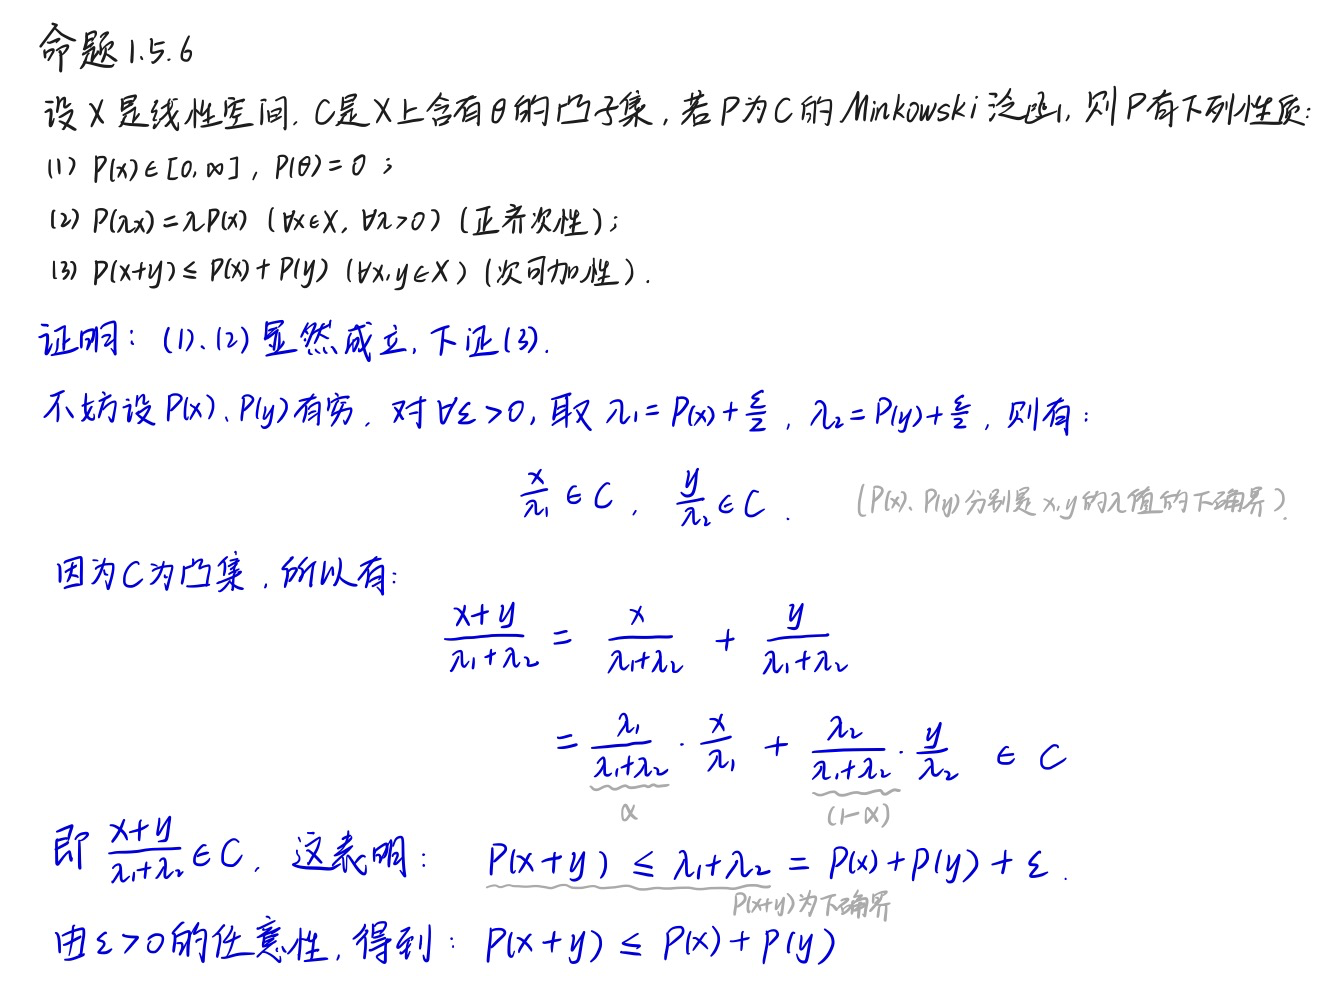 命题1.5.6
设X是线性空间, C是X上含有θ的凸子集, 若P为C的Minkowski泛函, 则P有下列性质:
(1) P(x)∈[0,∞], P(θ)=0;
(2) P(λx)=λP(x) (∀x∈X, ∀λ>0) (正齐次性);
(3) P(x+y)≤P(x)+P(y) (∀x,y∈X) (次可加性).
证明: (1)、(2)显然成立, 下证(3).
不妨设P(x)、P(y)有穷, 对∀ε>0, 取 λ₁=P(x)+ε/2, λ₂=P(y)+ε/2, 则有:
x/λ₁ ∈ C, y/λ₂ ∈ C. (P(x)、P(y)分别是x,y的λ值的下确界).
因为C为凸集, 所以有:
(x+y)/(λ₁+λ₂) = x/(λ₁+λ₂) + y/(λ₁+λ₂)
= λ₁/(λ₁+λ₂) · x/λ₁ + λ₂/(λ₁+λ₂) · y/λ₂ ∈ C
α (1-α)
即 (x+y)/(λ₁+λ₂) ∈ C, 这表明: P(x+y) ≤ λ₁+λ₂ = P(x)+P(y)+ε.
P(x+y)为下确界
由ε>0的任意性, 得到: P(x+y) ≤ P(x)+P(y)